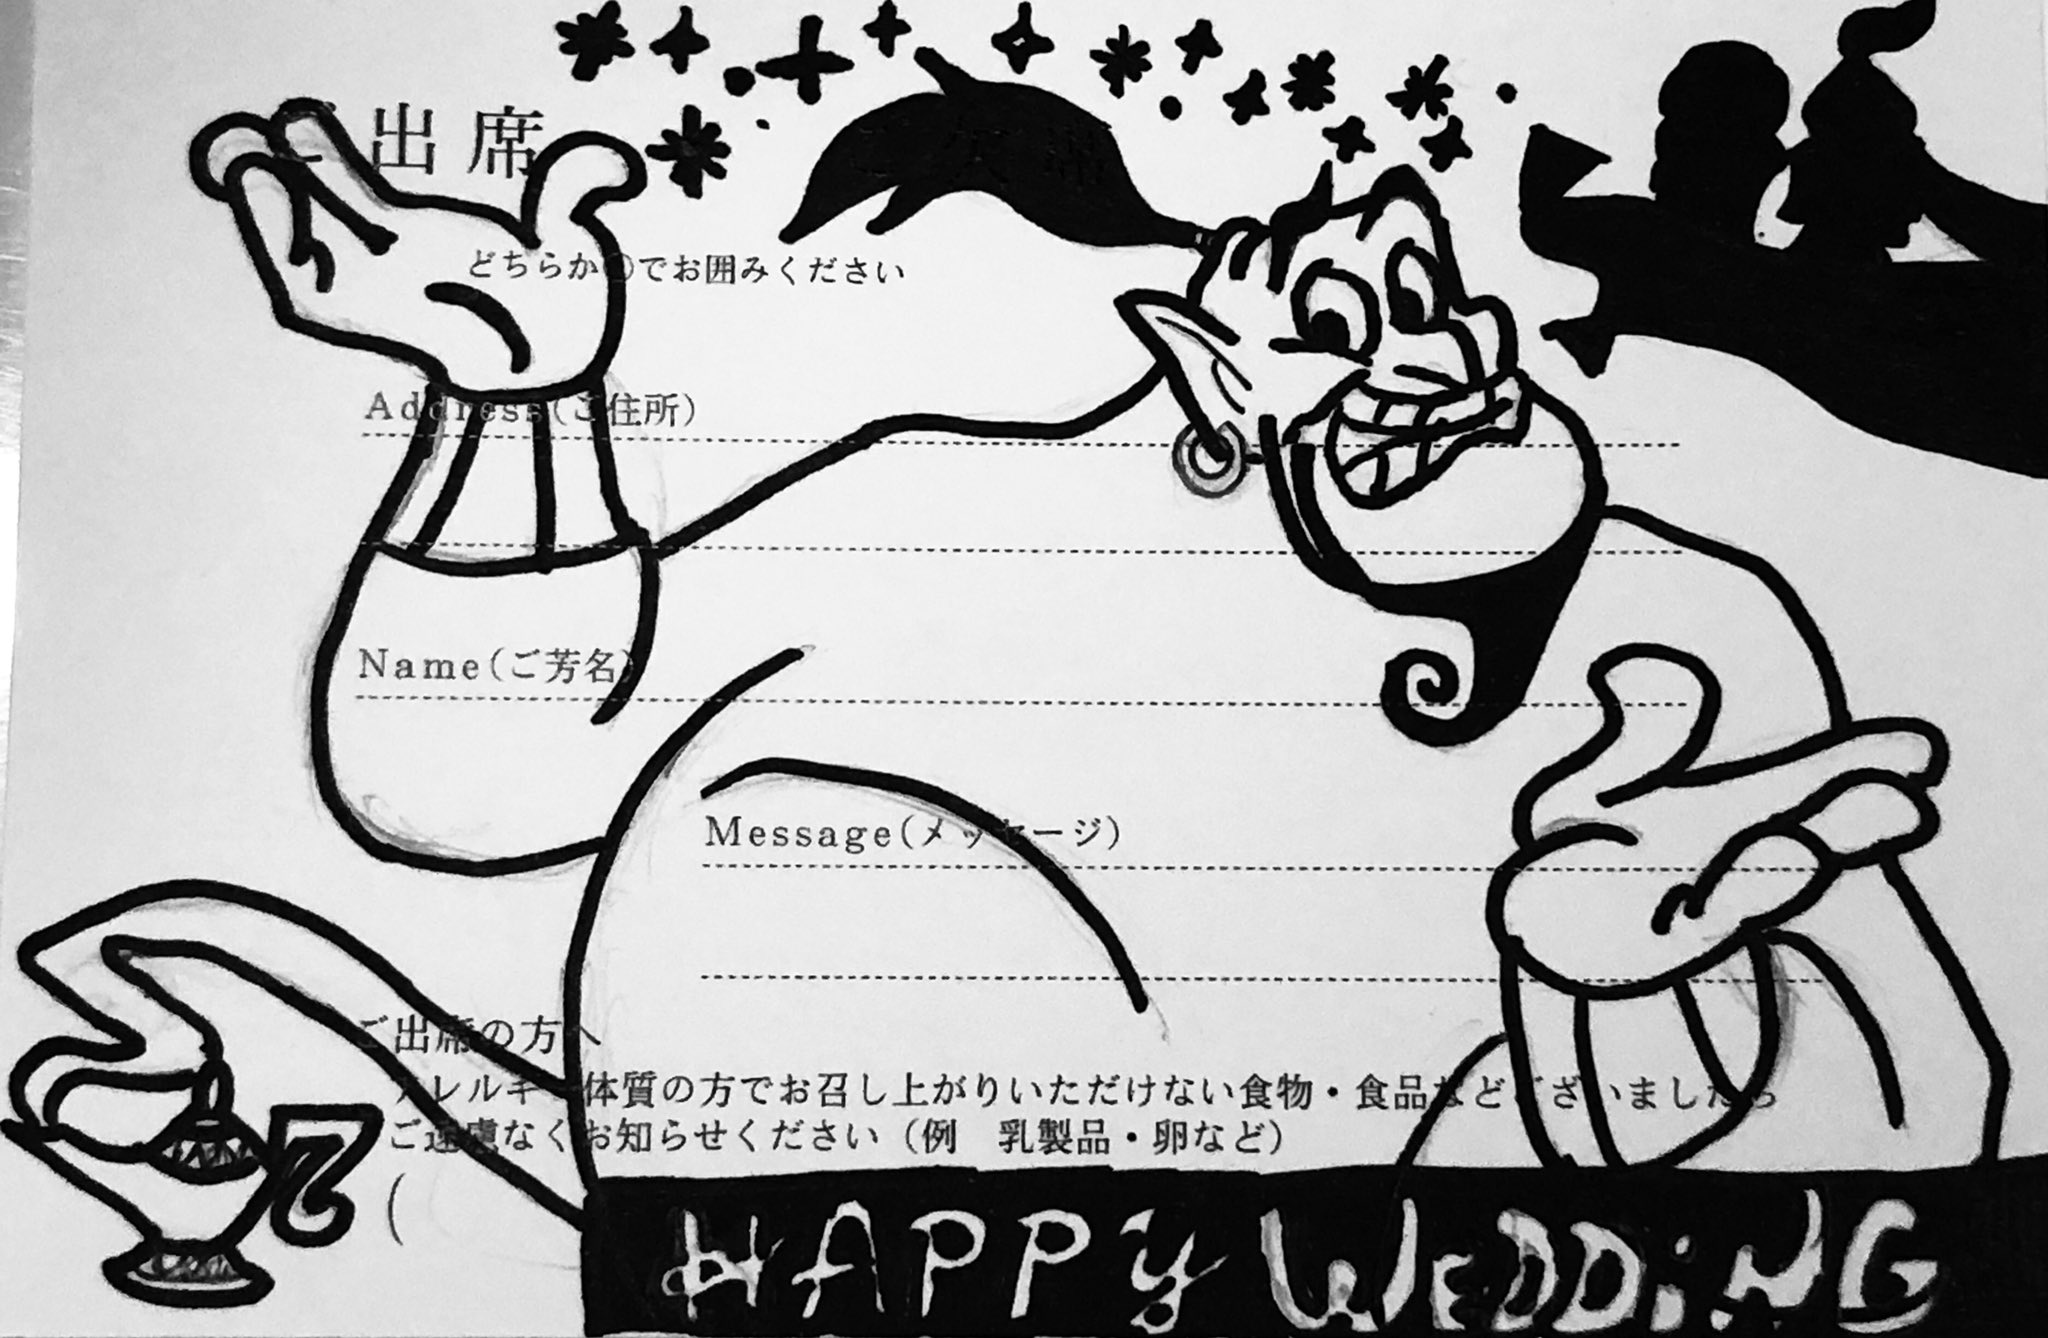 ご出席 ご欠席
どちらか○でお囲みください
Address(ご住所)
Name(ご芳名)
Message(メッセージ)
ご出席の方へ
アレルギー体質の方でお召し上がりいただけない食物・食品などございましたら
ご遠慮なくお知らせください（例　乳製品・卵など）
(
HAPPY WEDDiNG